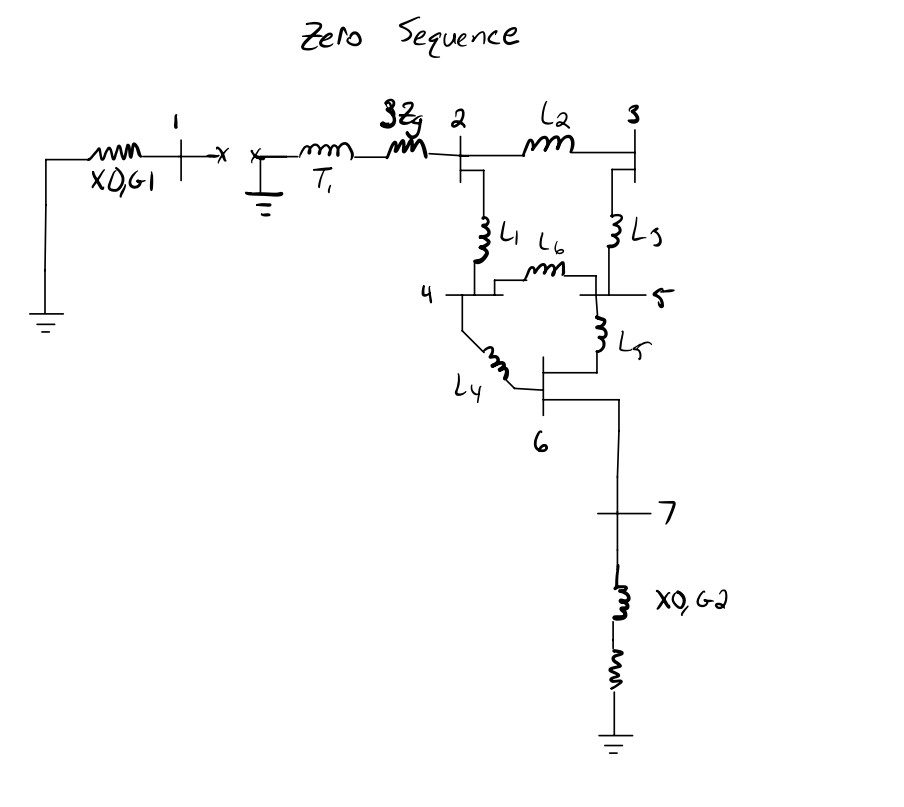 Zero Sequence
1
X0,G1
x
x
T1
3Zg
2
L2
3
L1
L6
L3
4
5
L5
L4
6
7
X0,G2